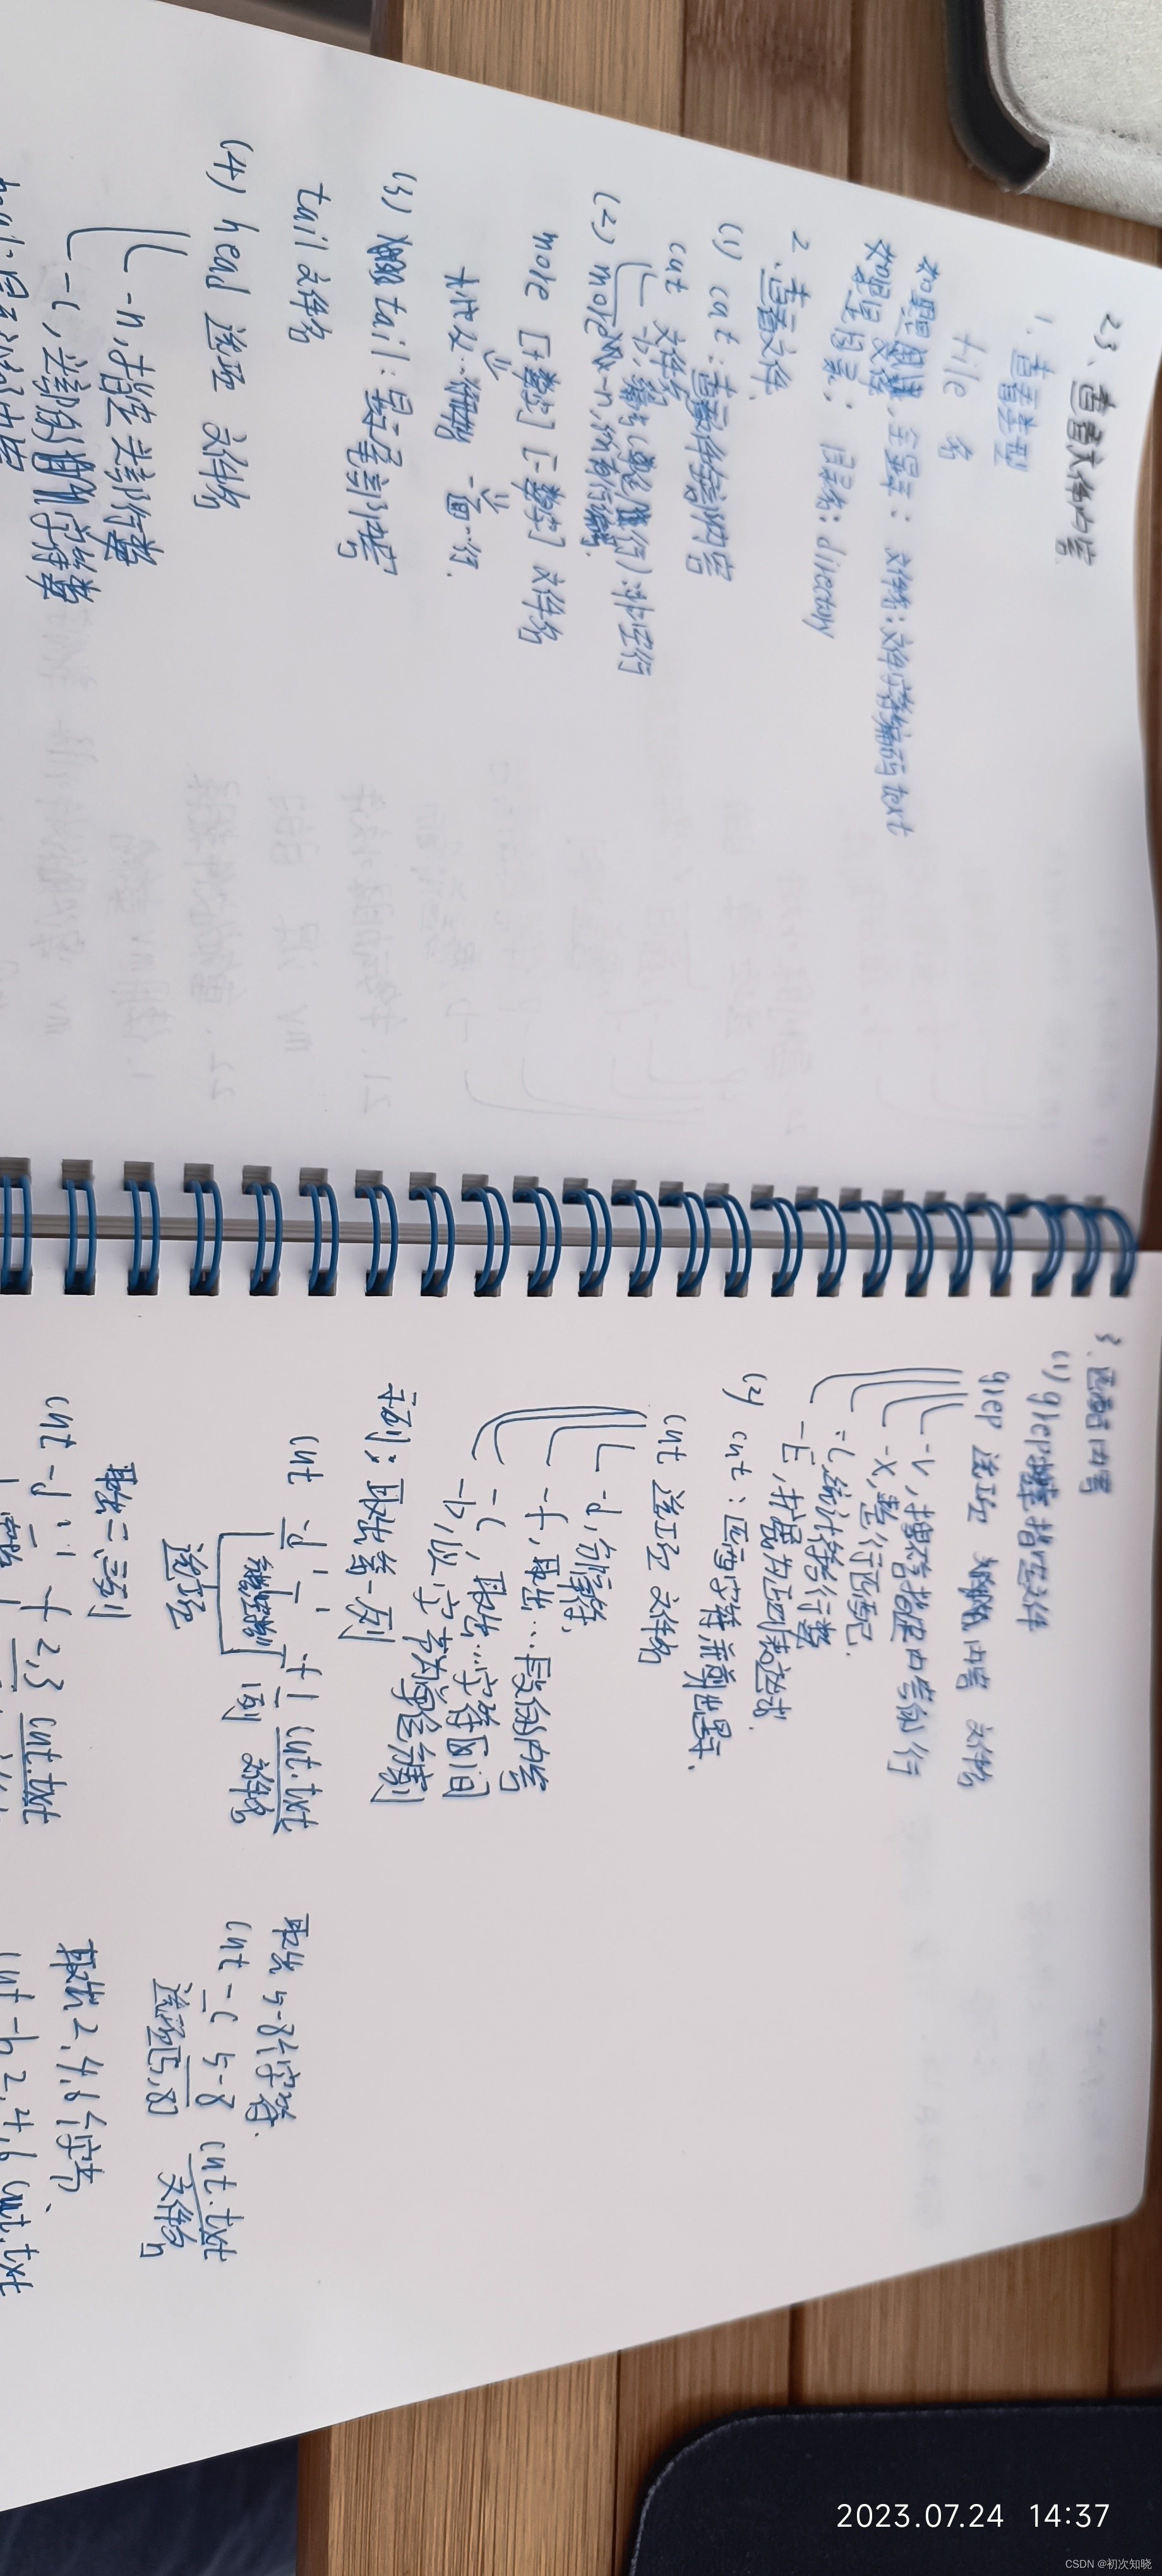 23、查看文件内容
1. 查看类型
file 名
如果是文件,会显示: 文件名:文件字符编码 text
如果是目录: 目录名: directory
2.查看文件
(1) cat:查看文件全部内容
cat 文件名
(2) more
more [+数字] [-数字] 文件名
从几行开始 一面一行.
(3) tail:显示尾部内容
tail 文件名
(4) head 选项 文件名
-n,指定头部行数
-c,头部的字符数
3. 匹配内容
(1) grep 指定文件
grep 选项 内容 文件名
-v,不含指定内容的行
-x,整行匹配.
-c,统计符合行数
-E,扩展为正则表达式.
(2) cut:匹配字符 并剪出显示.
cut 选项 文件名
-d,分隔符,
-f,取出…段的内容
-c,取出…字符区间
-b,以字节为单位分割
示列:取出第一列
cut -d ' ' -f 1 cut.txt
选项 1列 文件名
取出二、三列
cut -d ' ' -f 2,3 cut.txt
取出 5-8个字符.
cut -c 5-8 cut.txt
选项[5,8] 文件名
取出2,4,6个字节、
cut -b 2,4,6 cut.txt
2023.07.24 14:37
CSDN @初次知晓